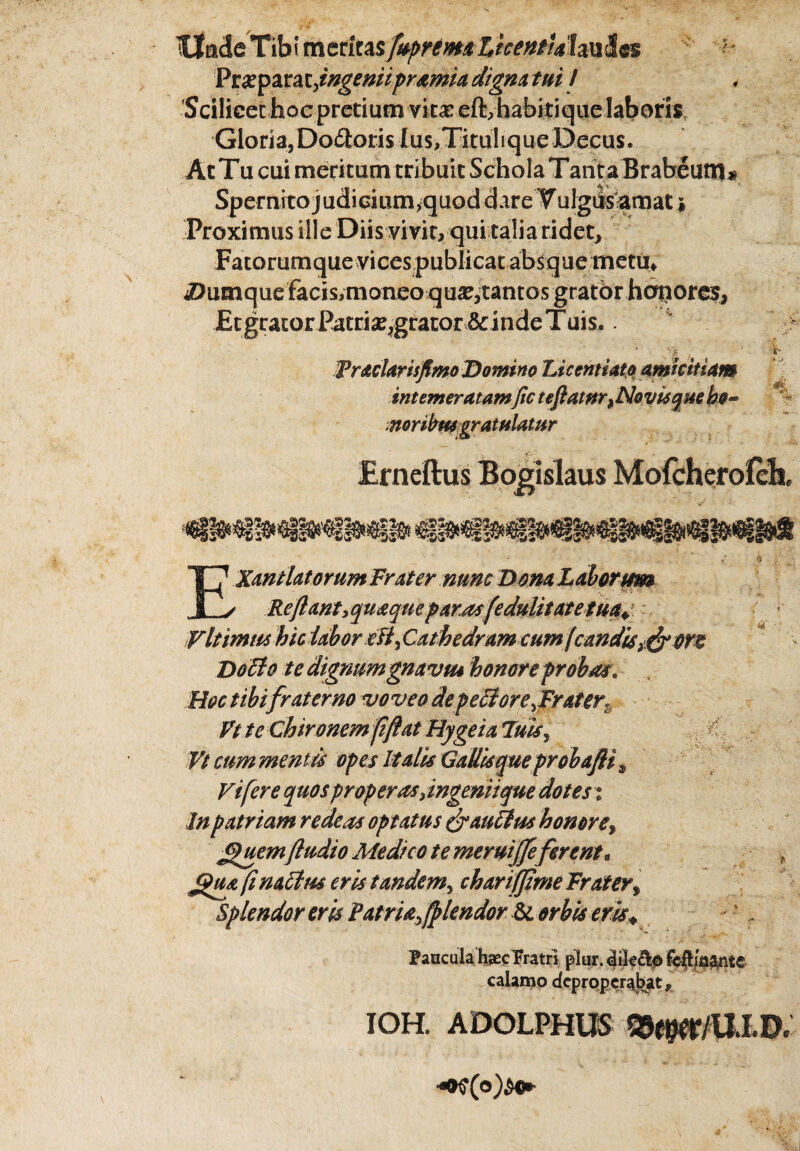 Unde Tibi meritas ſuprema Licentia laudes
Præparat, ingenii præmia digna tui!
Scilicet hoc pretium vitæ eſt, habitique laboris
Gloria, Doctoris Ius, Titulique Decus.
At Tu cui meritum tribuit Schola Tanta Brabêum,
Spernito judicium, quod dare Vulgus amat;
Proximus ille Diis vivit, qui talia ridet,
Fatorumque vices publicat absque metu.
Dumque facis, moneo quæ, tantos grator honores,
Et grator Patriæ, grator & inde Tuis.
Præclarisſimo Domino Licentiato amicitiam
intemeratam ſic teſtatur, Novisque ho-
noribus gratulatur
Erneſtus Bogislaus Moſcheroſch.
EXantlatorum Frater nunc Dona Laborum
Reſtant, quæque paras ſedulitate tua.
Vltimus hic labor eſt, Cathedram cum ſcandis, & ore
Docto te dignum gnavus honore probas.
Hoc tibi fraterno voveo de pectore, Frater,
Vt te Chironem ſiſtat Hygeia Tuis,
Vt cum mentis opes Italis Gallisque probaſti,
Viſere quos properas, ingeniique dotes:
In patriam redeas optatus & auctus honore,
Quem ſtudio Medico te meruiſſe ferent.
Qua ſi nactus eris tandem, chariſſime Frater,
Splendor eris Patriæ, ſplendor & orbis eris.
Paucula hæc Fratri plur. dilecto feſtinante
calamo deproperabat,
IOH. ADOLPHUS Beyer/U.I.D.
(o)